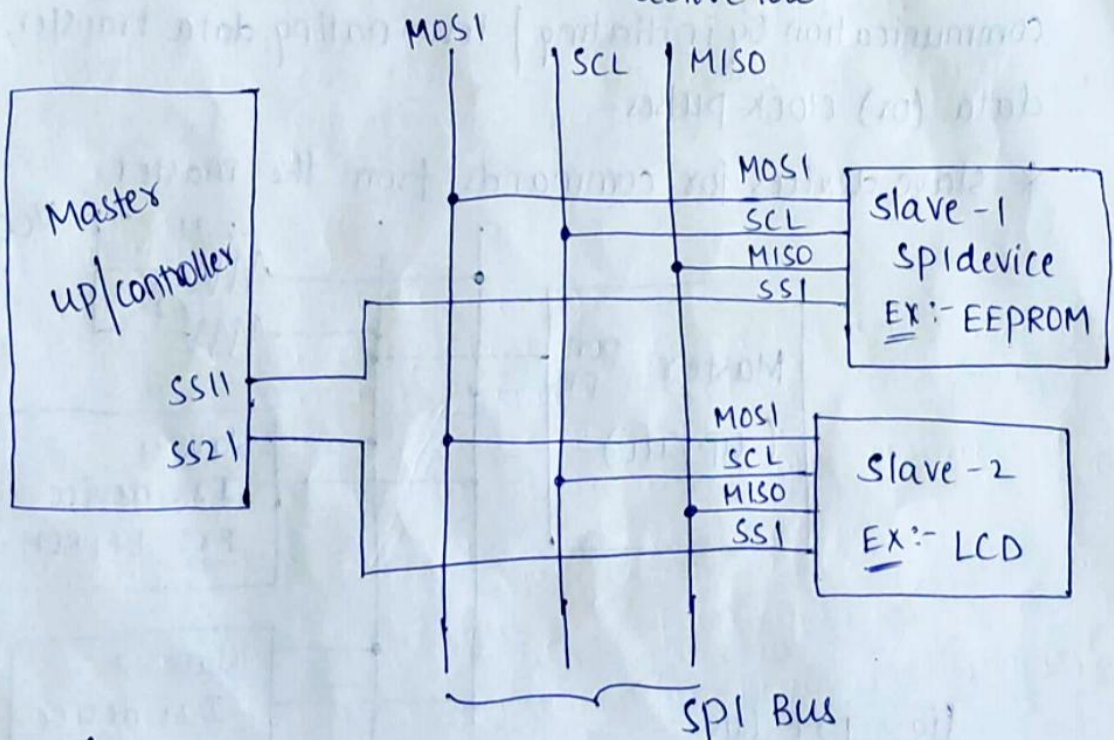 MOSI
SCL
MISO
Master
up/controller
SS11
SS21
MOSI
SCL
MISO
SS1
Slave-1
SPIdevice
Ex:- EEPROM
MOSI
SCL
MISO
SS1
Slave-2
Ex:- LCD
SPI Bus